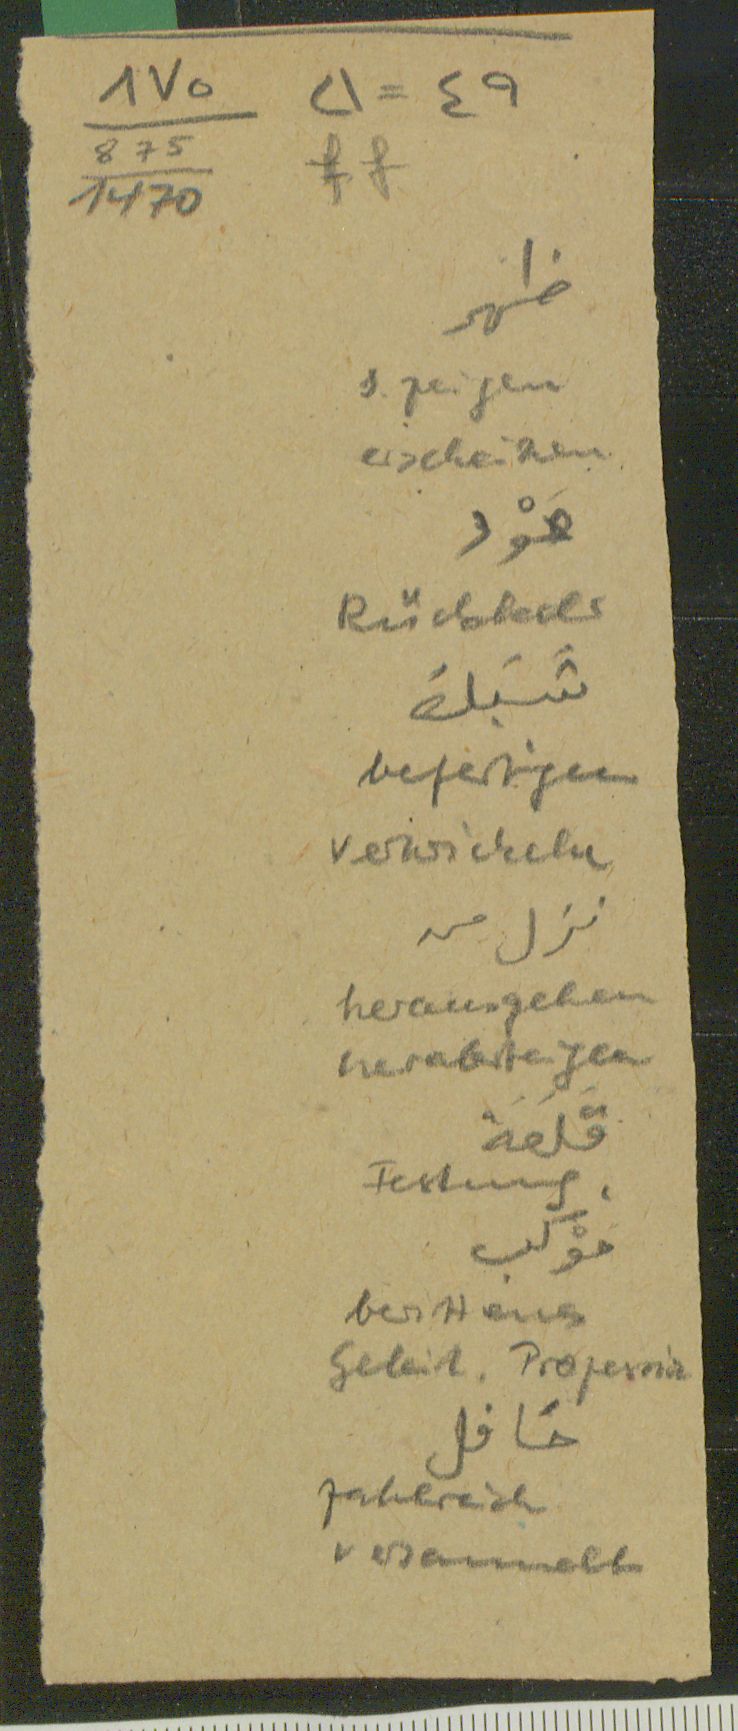 ١٧٥ = ٤٩
875 ff
1470
ظهر
s. zeigen
erscheinen
عَوْد
Rückkehr
شَبَكَ
befestigen
verwickeln
نزل من
herausgehen
herabsteigen
قَلعَة
Festung,
مَوْكَب
Geleit. Prozession
حَافل
zahlreich
versammelt